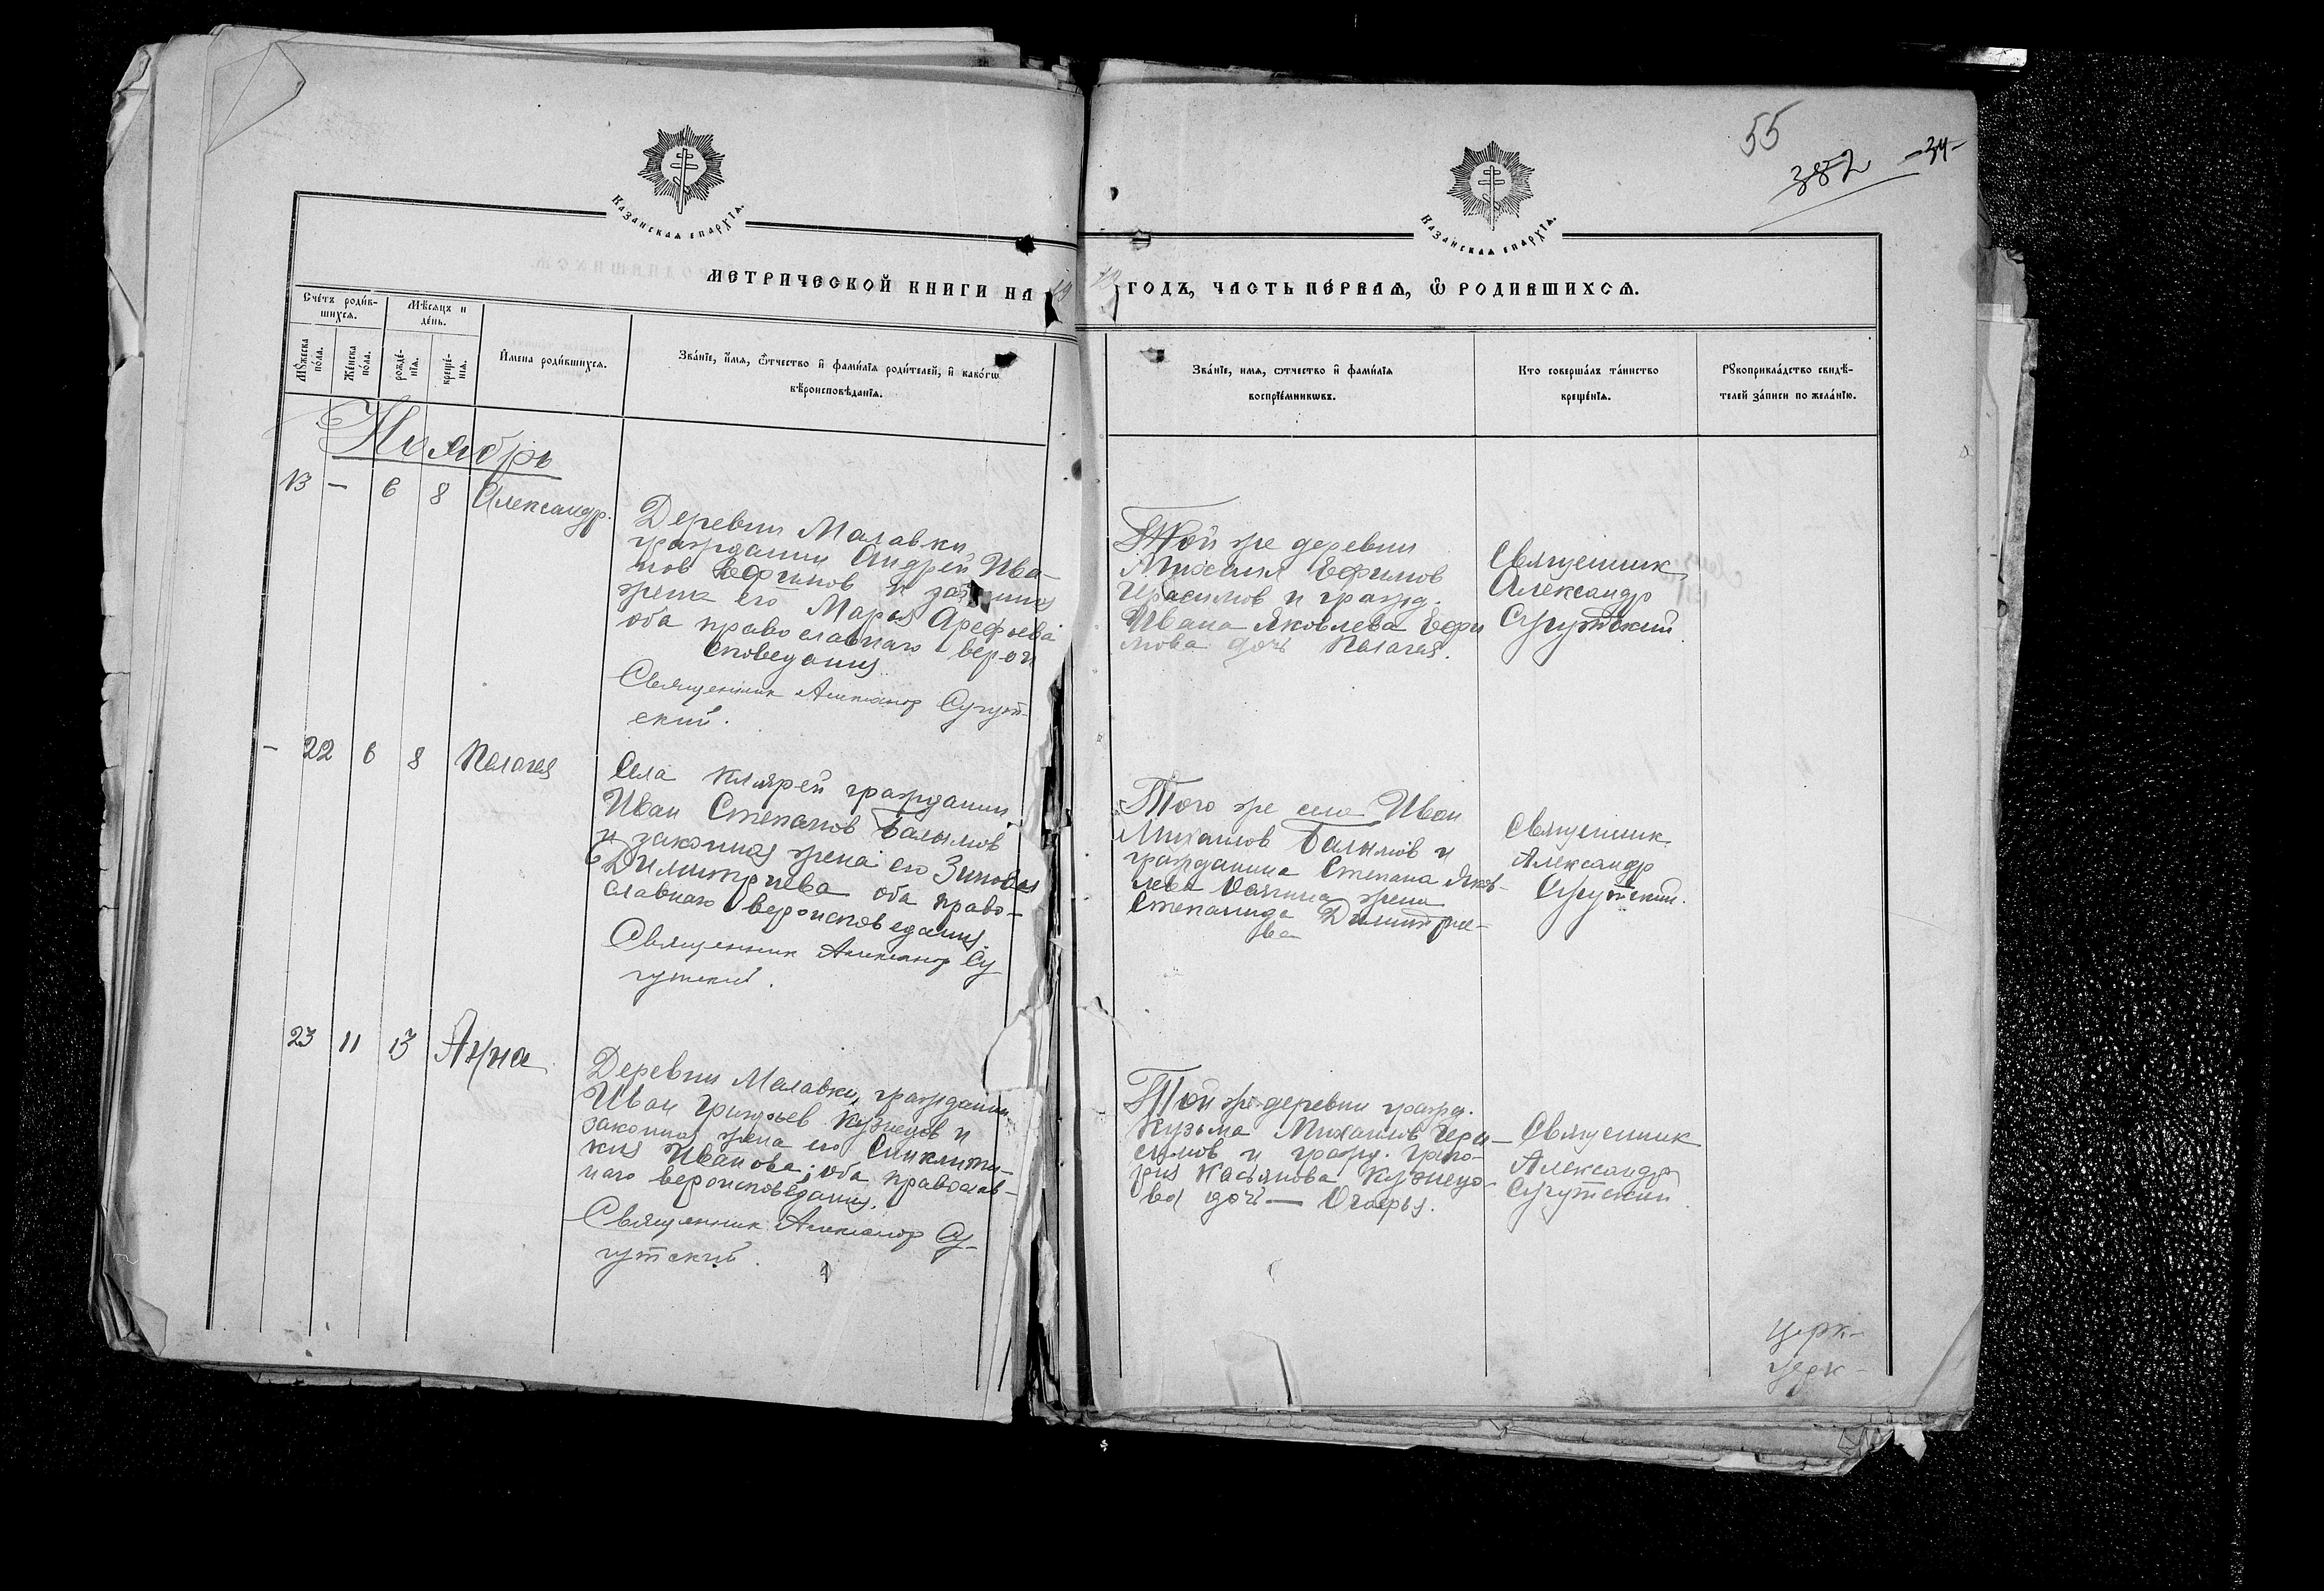 55
382 -34-
Казанская епархїѧ.
Казанская епархїѧ.
МЕТРИЧЕСКОЙ КНИГИ НА 19
19 ГОДЪ, ЧАСТЬ ПЕ́РВАЯ, Ѿ РОДИВШИХСѦ.
Сче́тъ роди́в-
шихсѧ.
Мѣ́сѧцъ и
де́нь.
Мꙋ́жеска
по́ла.
Же́нска
по́ла.
рожде́-
нїѧ.
креще́-
нїѧ.
И҆мена роди́вшихсѧ.
Зва́нїе, и҆́мѧ, ѻ҆́тчество и҆ фами́лїѧ роди́телей, и҆ како́гѡ
вѣроисповѣ́данїѧ.
Зва́нїе, имѧ, ѻтчество и҆ фами́лїѧ
воспрїе́мникѡвъ.
Кто соверша́лъ та́инство
креще́нїѧ.
Рꙋкоприкла́дство свидѣ́-
телей за́писи по жела́нїю.
Ноябрь
13 - 6 8 Александр.
Деревни Малавки,
гражданин Андрей Ива-
нов Ефимов и законная
жена его Марья Арефьева
оба православнаго верои
споведания
Священник Александр Сугут-
ский.
Той же деревни
Михаил Ефимов
Герасимов и гражд.
Ивана Яковлева Ефи
мова дочь Пелагея.
Священник
Александр
Сугутский
- 22 6 8 Пелагея
Села Клярей гражданин
Иван Степанов Балымов
и законная жена его Зиновия
Димитриева оба право-
славнаго вероисповедания.
Священник Александр Су
гутский.
Того же села Иван
Михаилов Балымов и
гражданина Степана Яков-
лева жена
Степанида Димитрие-
ва
Священник
Александр
Сугутский.
23 11 13 Анна
Деревни Малавки, гражданин
Иван Григорьев Кузнецов и
законная жена его Синклити-
кия Иванова; оба православ-
наго вероисповедания.
Священник Александр Су-
гутский.
Той же деревни гражд.
Кузьма Михаилов Гера-
симов и гражд. Григо-
рия Касьянова Кузнецо-
ва дочь —
Священник
Александр
Сугутский
церк-
церк-